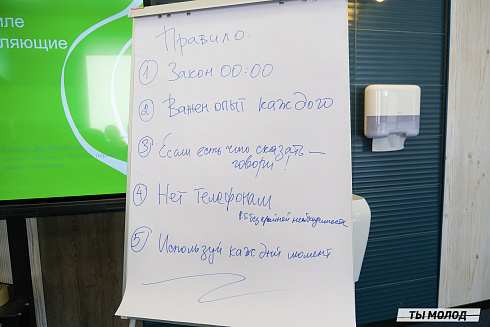 иле
ляющие
Правило:
① Закон 00:00
② Важен опыт каждого
③ Если есть что сказать –
говори!
④ Нет телефонам
без крайней необходимости
⑤ Используй каждый момент
ТЫ МОЛОД